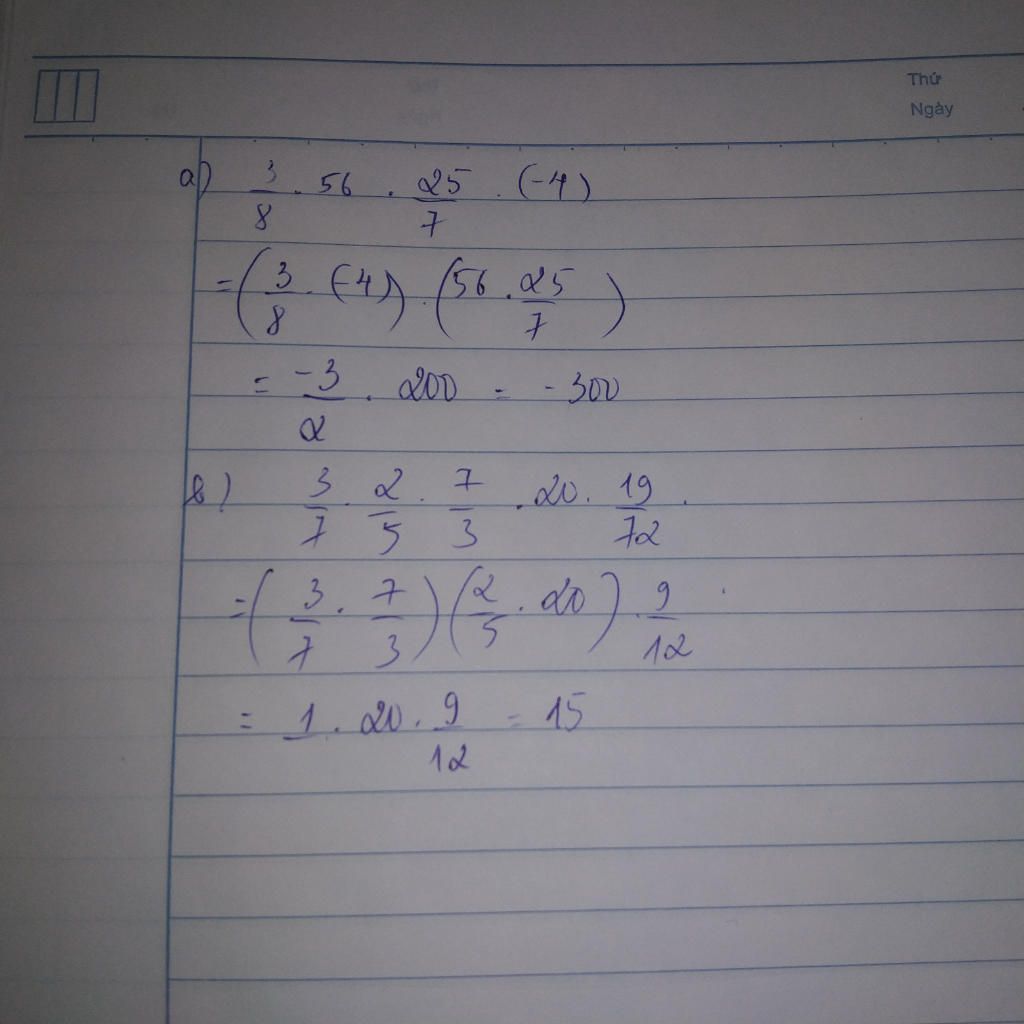 Thứ
Ngày
a) 3/8 . 56 . 25/7 . (-4)
= (3/8 . (-4)) . (56 . 25/7)
= -3/2 . 200 = -300
b) 3/7 . 2/5 . 7/3 . 20 . 19/72 .
= (3/7 . 7/3) (2/5 . 20) . 9/12
= 1 . 20 . 9/12 = 15